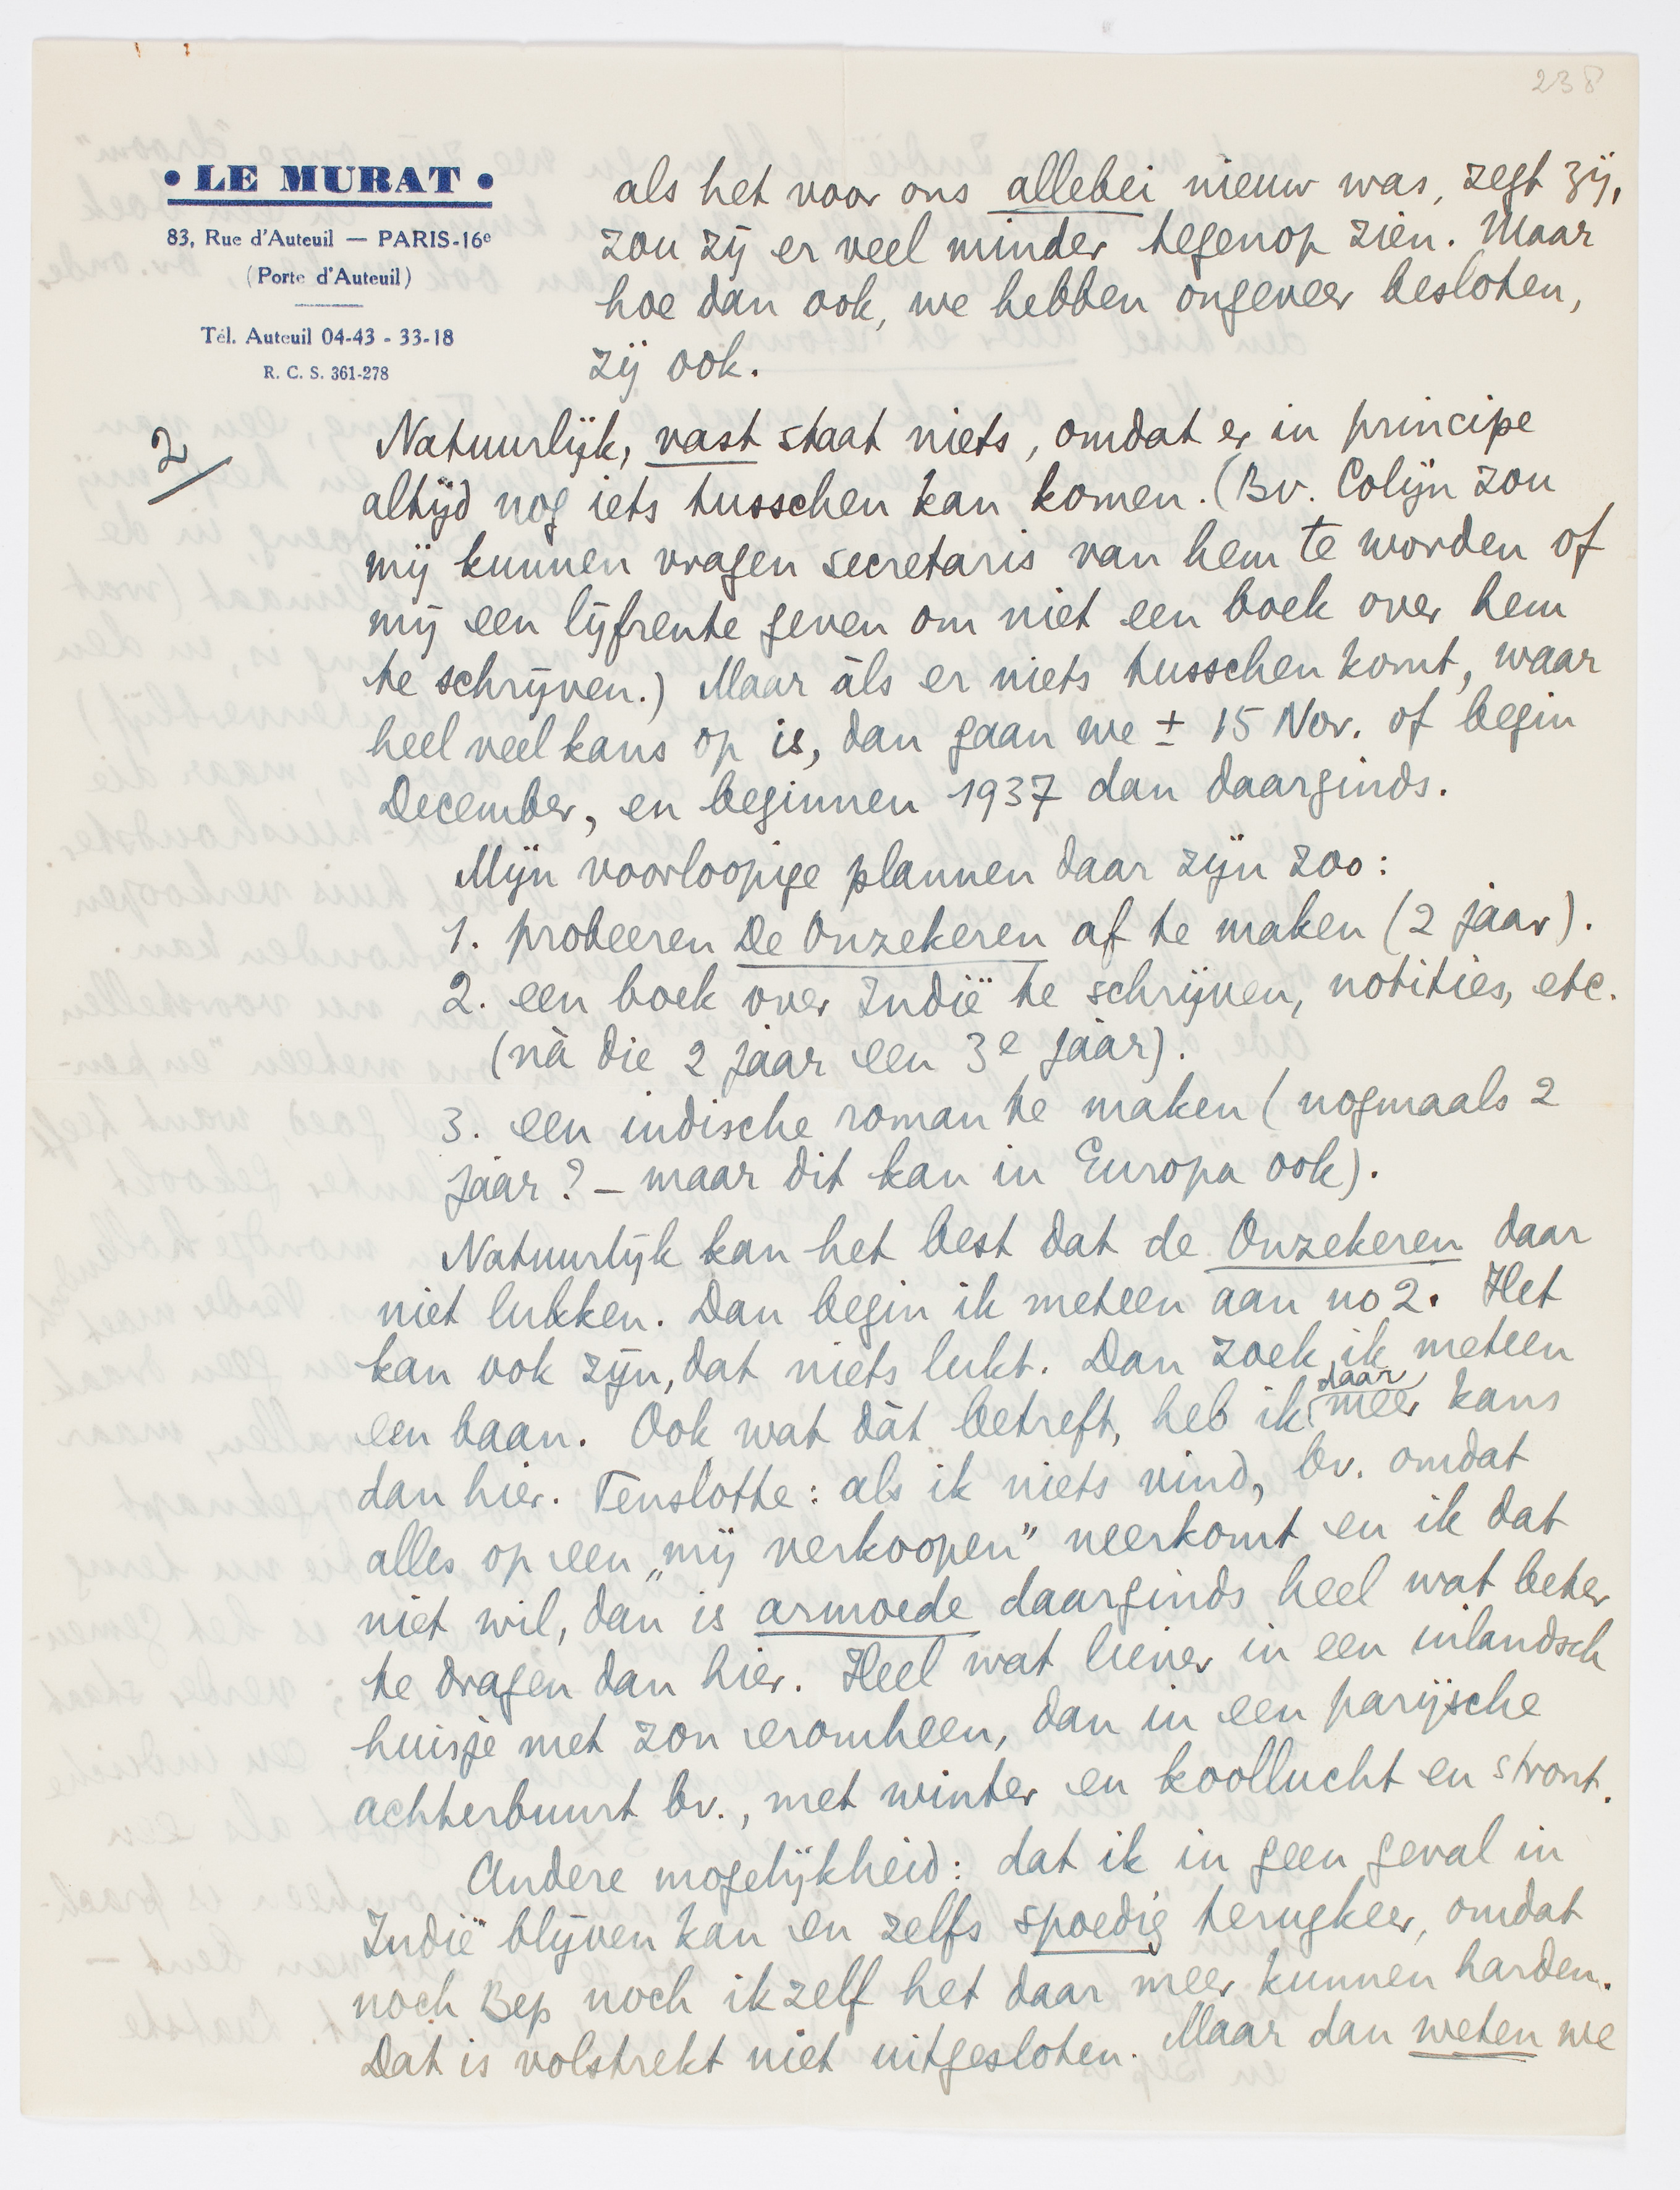 238
• LE MURAT •
83, Rue d'Auteuil — PARIS-16e
(Porte d'Auteuil)
Tél. Auteuil 04-43 - 33-18
R. C. S. 361-278
als het voor ons allebei nieuw was, zegt zij,
zou zij er veel minder tegenop zien. Maar
hoe dan ook, we hebben ongeveer besloten,
zij ook.
2/
Natuurlijk, vast staat niets, omdat er in principe
altijd nog iets tusschen kan komen. (Bv. Colijn zou
mij kunnen vragen secretaris van hem te worden of
mij een lijfrente geven om niet een boek over hem
te schrijven.) Maar àls er niets tusschen komt, waar
heel veel kans op is, dan gaan we ± 15 Nov. of begin
December, en beginnen 1937 dan daarginds.
Mijn voorloopige plannen daar zijn zoo:
1. probeeren De Onzekeren af te maken (2 jaar).
2. een boek over Indië te schrijven, notities, etc.
(nà die 2 jaar een 3e jaar).
3. een indische roman te maken (nogmaals 2
jaar? – maar dit kan in Europa ook).
Natuurlijk kan het best dat de Onzekeren daar
niet lukken. Dan begin ik meteen aan no 2. Het
kan ook zijn, dat niets lukt. Dan zoek ik meteen
een baan. Ook wat dàt betreft, heb ik daar meer kans
dan hier. Tenslotte: als ik niets vind, bv. omdat
alles op een „mij verkoopen" neerkomt en ik dat
niet wil, dan is armoede daarginds heel wat beter
te dragen dan hier. Heel wat liever in een inlandsch
huisje met zon eromheen, dan in een parijsche
achterbuurt bv., met winter en koollucht en stront.
Andere mogelijkheid: dat ik in geen geval in
Indië blijven kan en zelfs spoedig terugkeer, omdat
noch Bep noch ikzelf het daar meer kunnen harden.
Dat is volstrekt niet uitgesloten. Maar dan weten we